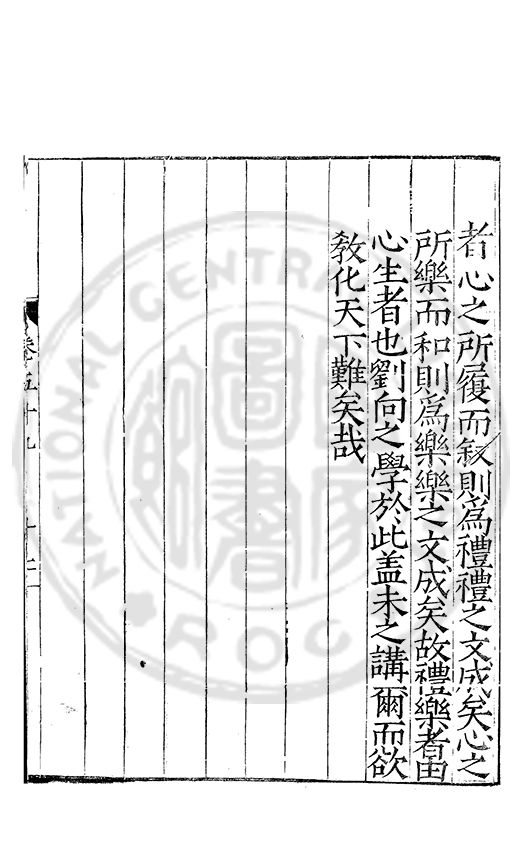 者心之所履而敘則爲禮禮之文成矣心之
所樂而和則爲樂樂之文成矣故禮樂者由
心生者也劉向之學於此盖未之講爾而欲
教化天下難矣哉
卷五十九
十二
NATIONAL CENTRAL
R.O.C.